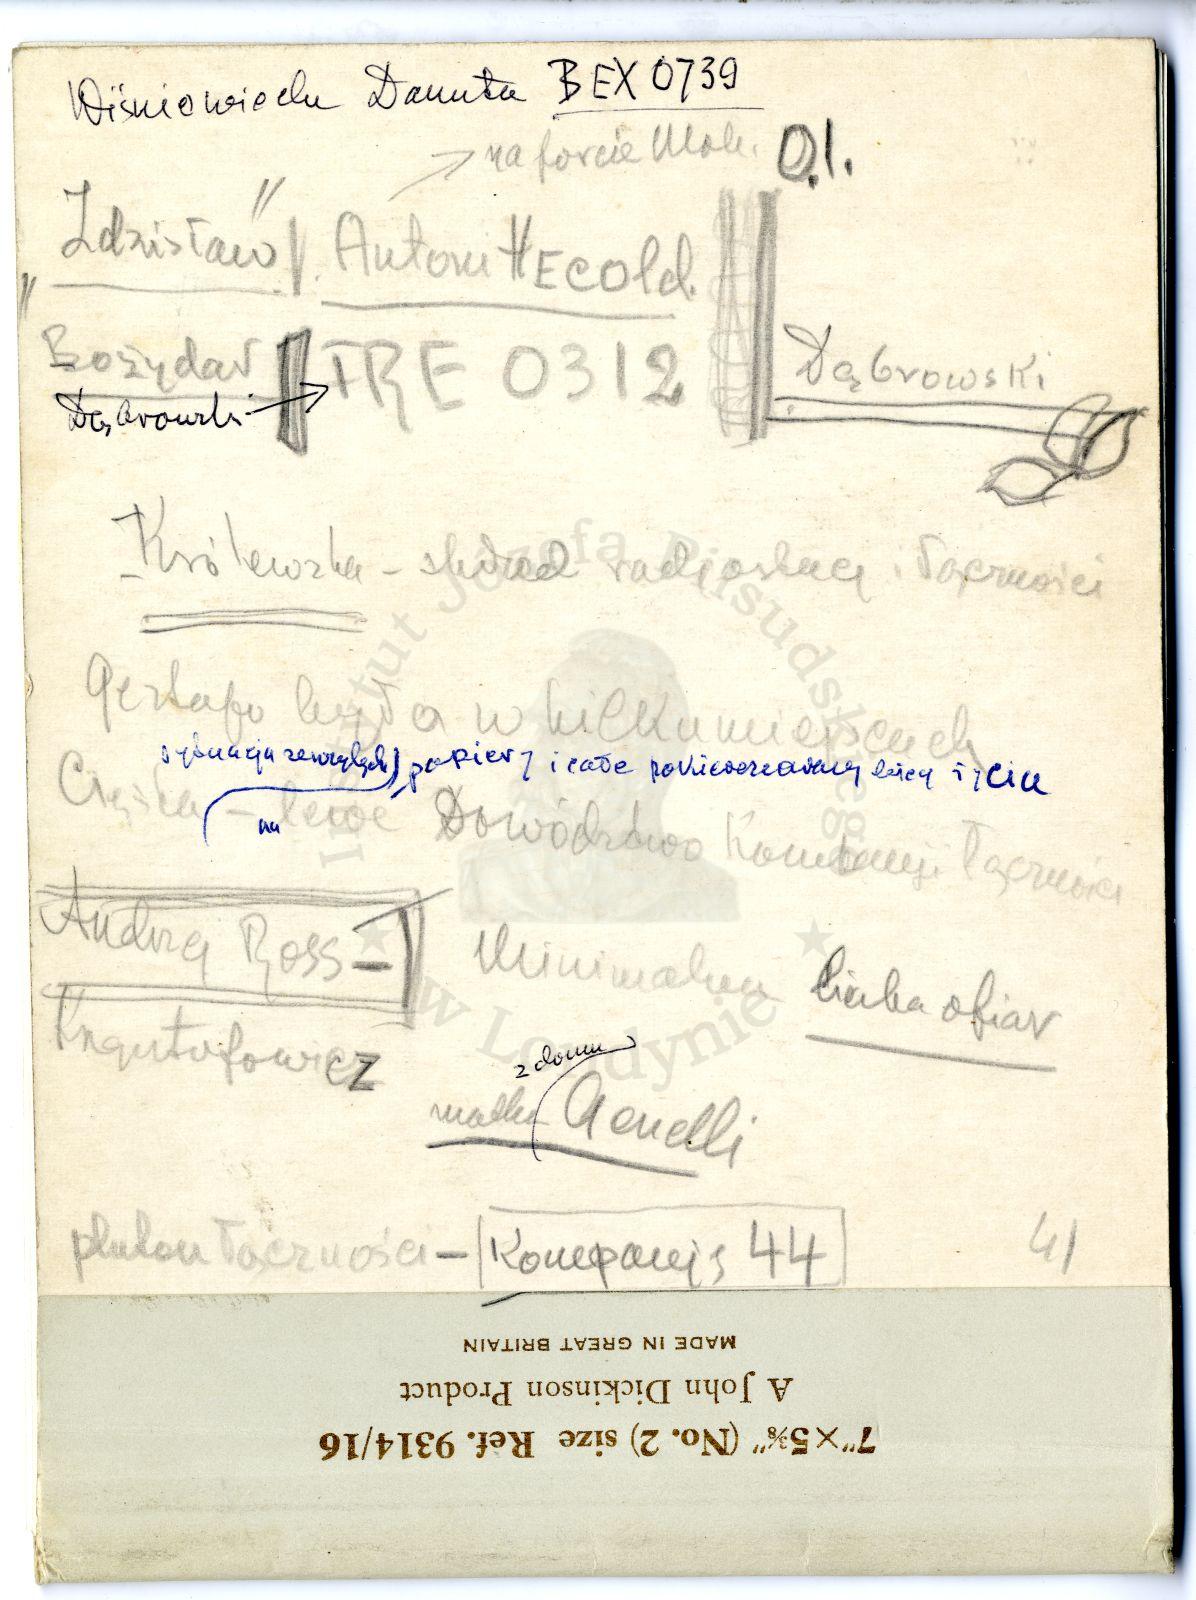 Wiśniowiecka Danuta BEX 0739
na forcie Mok. O.I.
Zdzisław" Antoni HECOld
"Bożydar TRE 0312
Dąbrowski Dąbrowski
Królewska – skład radiostacji i łączności
Gestapo było w kilku miejscach
sytuacja papiery i całe życia
Ciężka – na Dowództwo Kompanji Łączności
Andrzej Ross –
Minimalna liczba ofiar
Krzysztofowicz
z domu
matka Genelli
pluton łączności – Kompanja 44
MADE IN GREAT BRITAIN
A John Dickinson Product
7" × 5⅜" (No. 2) size Ref. 9314/16
Instytut Józefa Piłsudskiego
★ w Londynie ★